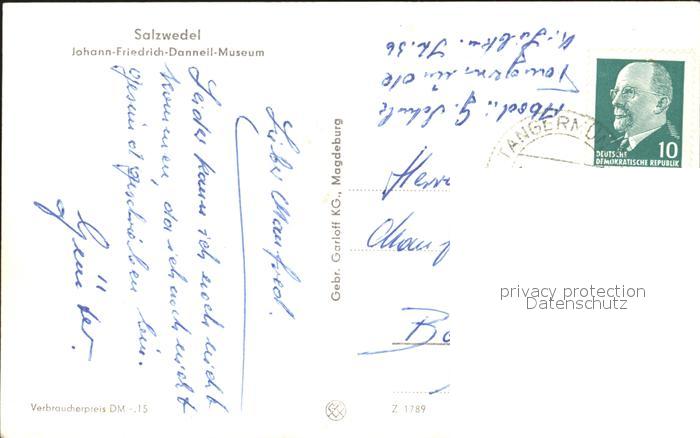 Salzwedel
Johann-Friedrich-Danneil-Museum
Lieber Manfred.
Leider kann ich noch nicht
kommen, da ich noch nicht
gesund geschrieben bin.
Günter.
Verbraucherpreis DM -.15
Gebr. Garloff KG., Magdeburg
Z 1789
Absd.: G. Schulz
Tangermünde
TANGERMÜ
10
DEUTSCHE
DEMOKRATISCHE REPUBLIK
Herrn
Manf
Bo
privacy protection
Datenschutz